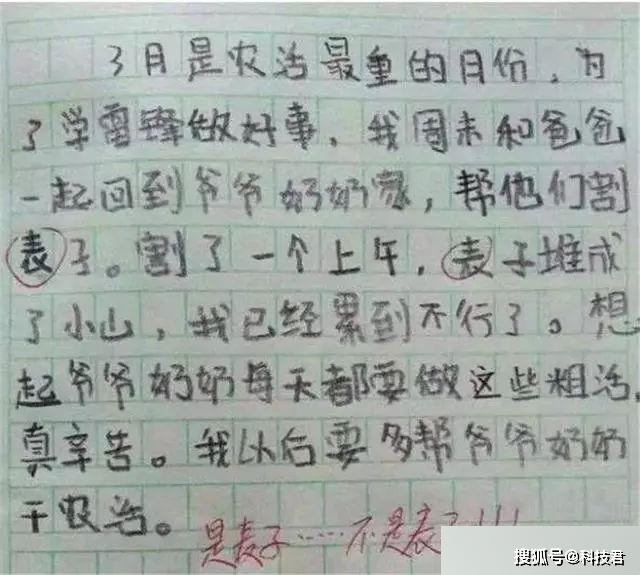 3月是农活最重的月份,为
了学雷锋做好事,我周末和爸爸
一起回到爷爷奶奶家,帮他们割
表子。割了一个上午,表子堆成
了小山,我已经累到不行了。想
起爷爷奶奶每天都要做这些粗活,
真辛告。我以后要多帮爷爷奶奶
干农活。
是麦子……不是表子!!!
搜狐号@科技君